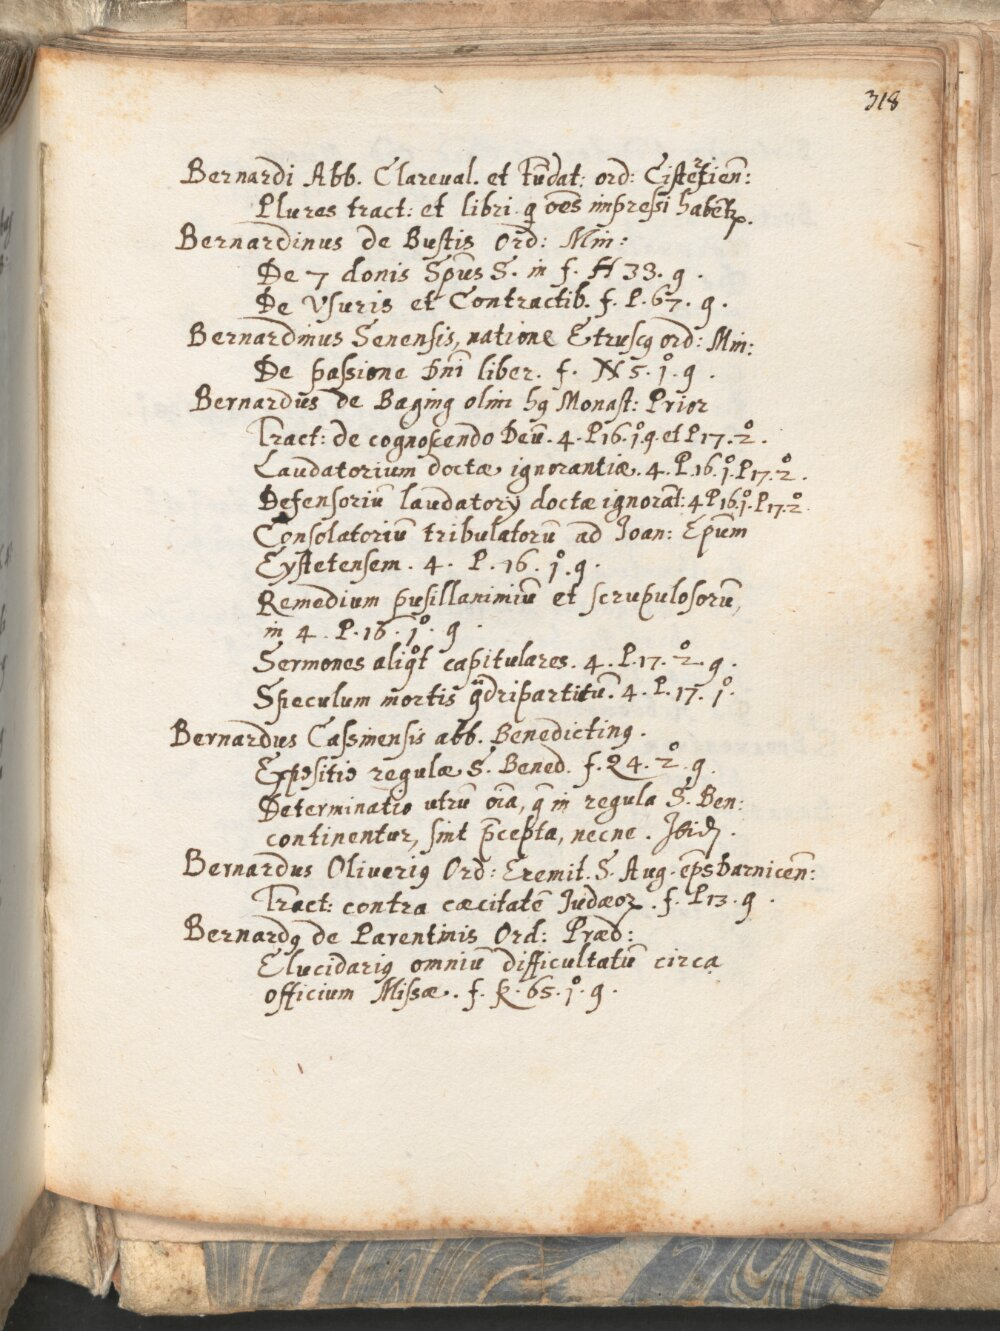 318
Bernardi Abb. Clareual. et fūdat: ord: Cisterciēn:
Plures tract: et libri q̄ oēs impressi habētꝛ.
Bernardinus de Bustis Ord: Min:
De 7 donis Spūs S. in f. H 33. q.
De Vsuris et Contractib. f. P. 67. q.
Bernardinus Senensis, natione Etruscꝰ ord: Min:
De passione Dn̄i liber. f. N 5. 1°. q.
Bernardūs de Bæging olim hꝰ Monast: Prior
Tract: de cognoscendo Deū. 4. P16. 1° q. et P17. 2°.
Laudatorium doctæ ignorantiæ. 4. P. 16. 1°. P17. 2°.
Defensoriū laudatorij doctæ ignorāt: 4 P16. 1°. P17. 2°
Consolatoriū tribulatorū ad Joan: Epūm
Eystetensem. 4. P. 16. 1°. q.
Remedium pusillanimiū et scrupulosorū,
in 4. P. 16. 1°. q.
Sermones aliqͦt capitulares. 4. P. 17. 2° q.
Speculum mortis q̈dripartitū. 4. P. 17. 1°.
Bernardus Cassinensis abb. Benedictinꝰ.
Expositio regulæ S. Bened. f. Q4. 2°. q.
Determinatio utrū oīa, q̄ in regula S. Ben:
continentur, sint p̄cepta, necne. Ibid.
Bernardus Oliueriꝰ Ord: Eremit. S. Aug. ēps barnicēn:
Tract: contra cæcitatē Iudæoꝝ. f. P13. q.
Bernardꝰ de Parentinis Ord: Præd:
Elucidariꝰ omniū difficultatū circa
officium Missæ. f. K. 65. 1°. q.